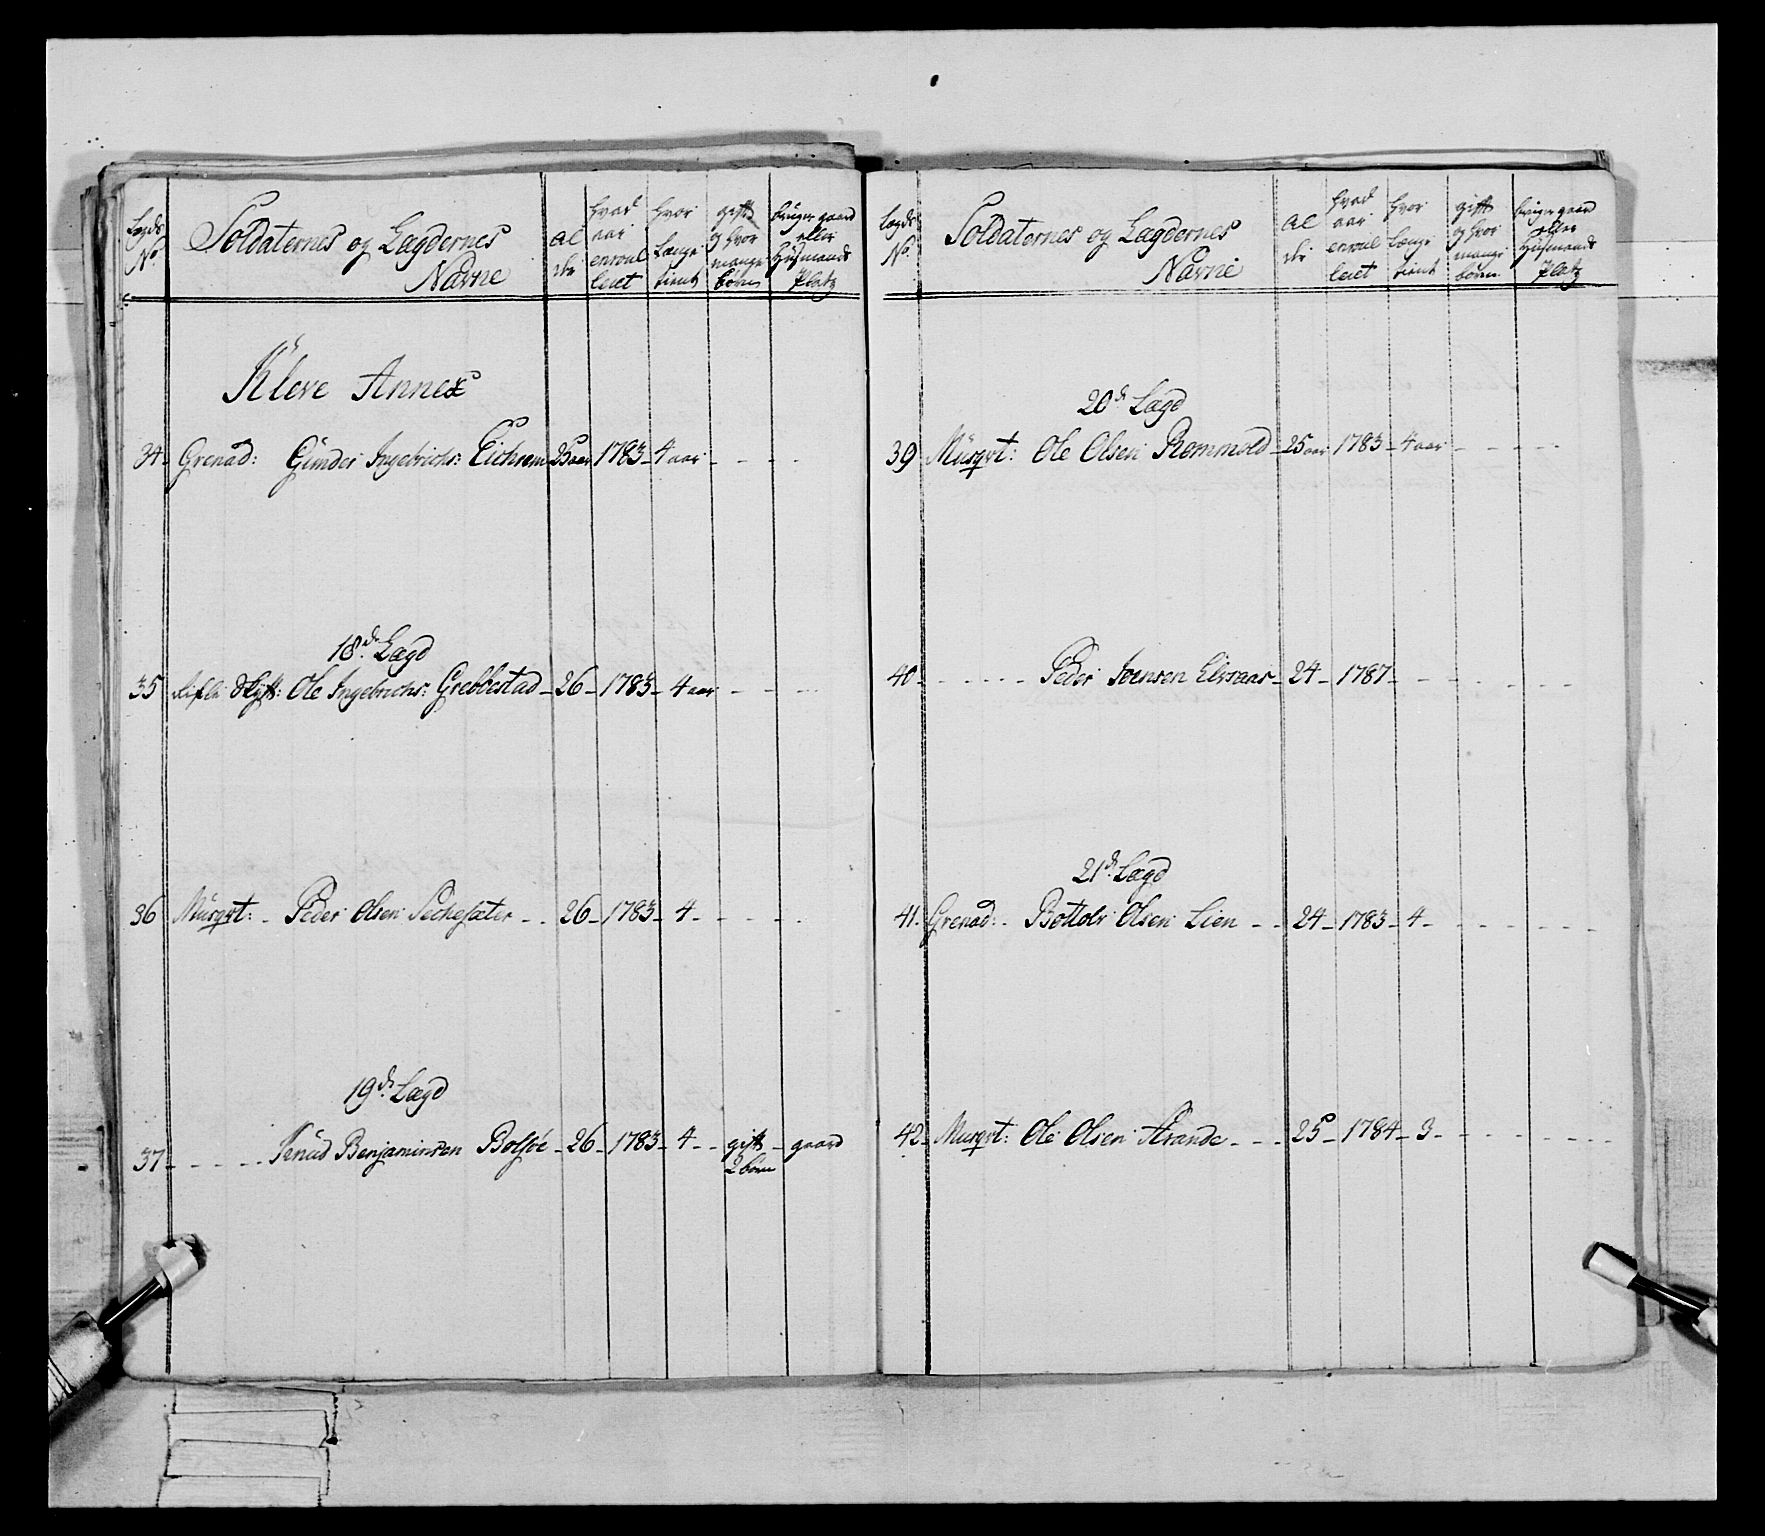 Lægds No | Soldaternes og Lægdernes Navne | Alder | hvad aar enroulleret | hvor længe tient | gift og hvor mange børn | bruger gaard eller Husmands Platz
Kleve Annex
34. Grenad: Gunder Ingebrichs: Eichrem 25 aar 1783 4 aar
18de Lægd
35 Rifle Skyt: Ole Ingebrichs: Grebbestad 26 1783 4 aar
36 Musqvt: Peder Olsen Sechesæter 26 1783 4
19de Lægd
37 Knud Benjaminsen Bolsøe 26 1783 4 gift 2 børn gaard
Lægds No. | Soldaternes og Lægdernes Navne | Alder | hvad aar enroulleret | hvor længe tient | gift og hvor mange børn | bruger gaard eller Husmands Platz
20de Lægd
39 Musqvt: Ole Olsen 25 aar 1783 4 aar
40 Peder Joensen 24 1787
21de Lægd
41. Grenad: Bottolv Olsen Lien 24 1783 4
42 Musqvt: Ole Olsen Strande 25 1784 3